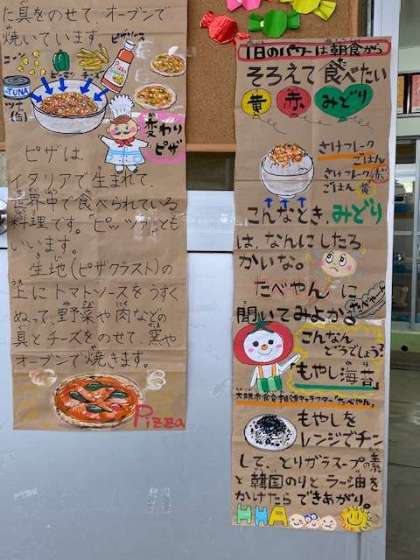 た具をのせて オーブンで
焼いています。
ピザソース
ニンジン
ピーマン
チーズ
TUNA
ツナ
(缶)
変わり
ピザ
ピザは、
イタリアで生まれて、
世界中で食べられている
料理です。「ピッツァ」とも
いいます。
生地(ピザクラスト)の
上にトマトソースをうすく
ぬって、野菜や肉などの
具とチーズをのせて、窯や
オーブンで焼きます。
Pizza
1日のパワーは朝食から
そろえて食べたい
黄 赤 みどり
さけフレーク
ごはん
さけフレーク 赤
ごはん 黄
こんなとき、みどり
は、なんにしたら
いいかな。
たべやんに
聞いてみよから
こんなん
どうでしょう?
もやし海苔
大阪市食育推進キャラクター「たべやん」
もやしを
レンジでチン
して、とりガラスープの素
と韓国のりとラー油を
かけたら できあがり。